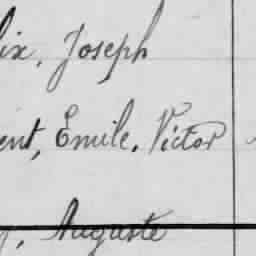 ix, Joseph
ent, Emile, Victor
, Auguste